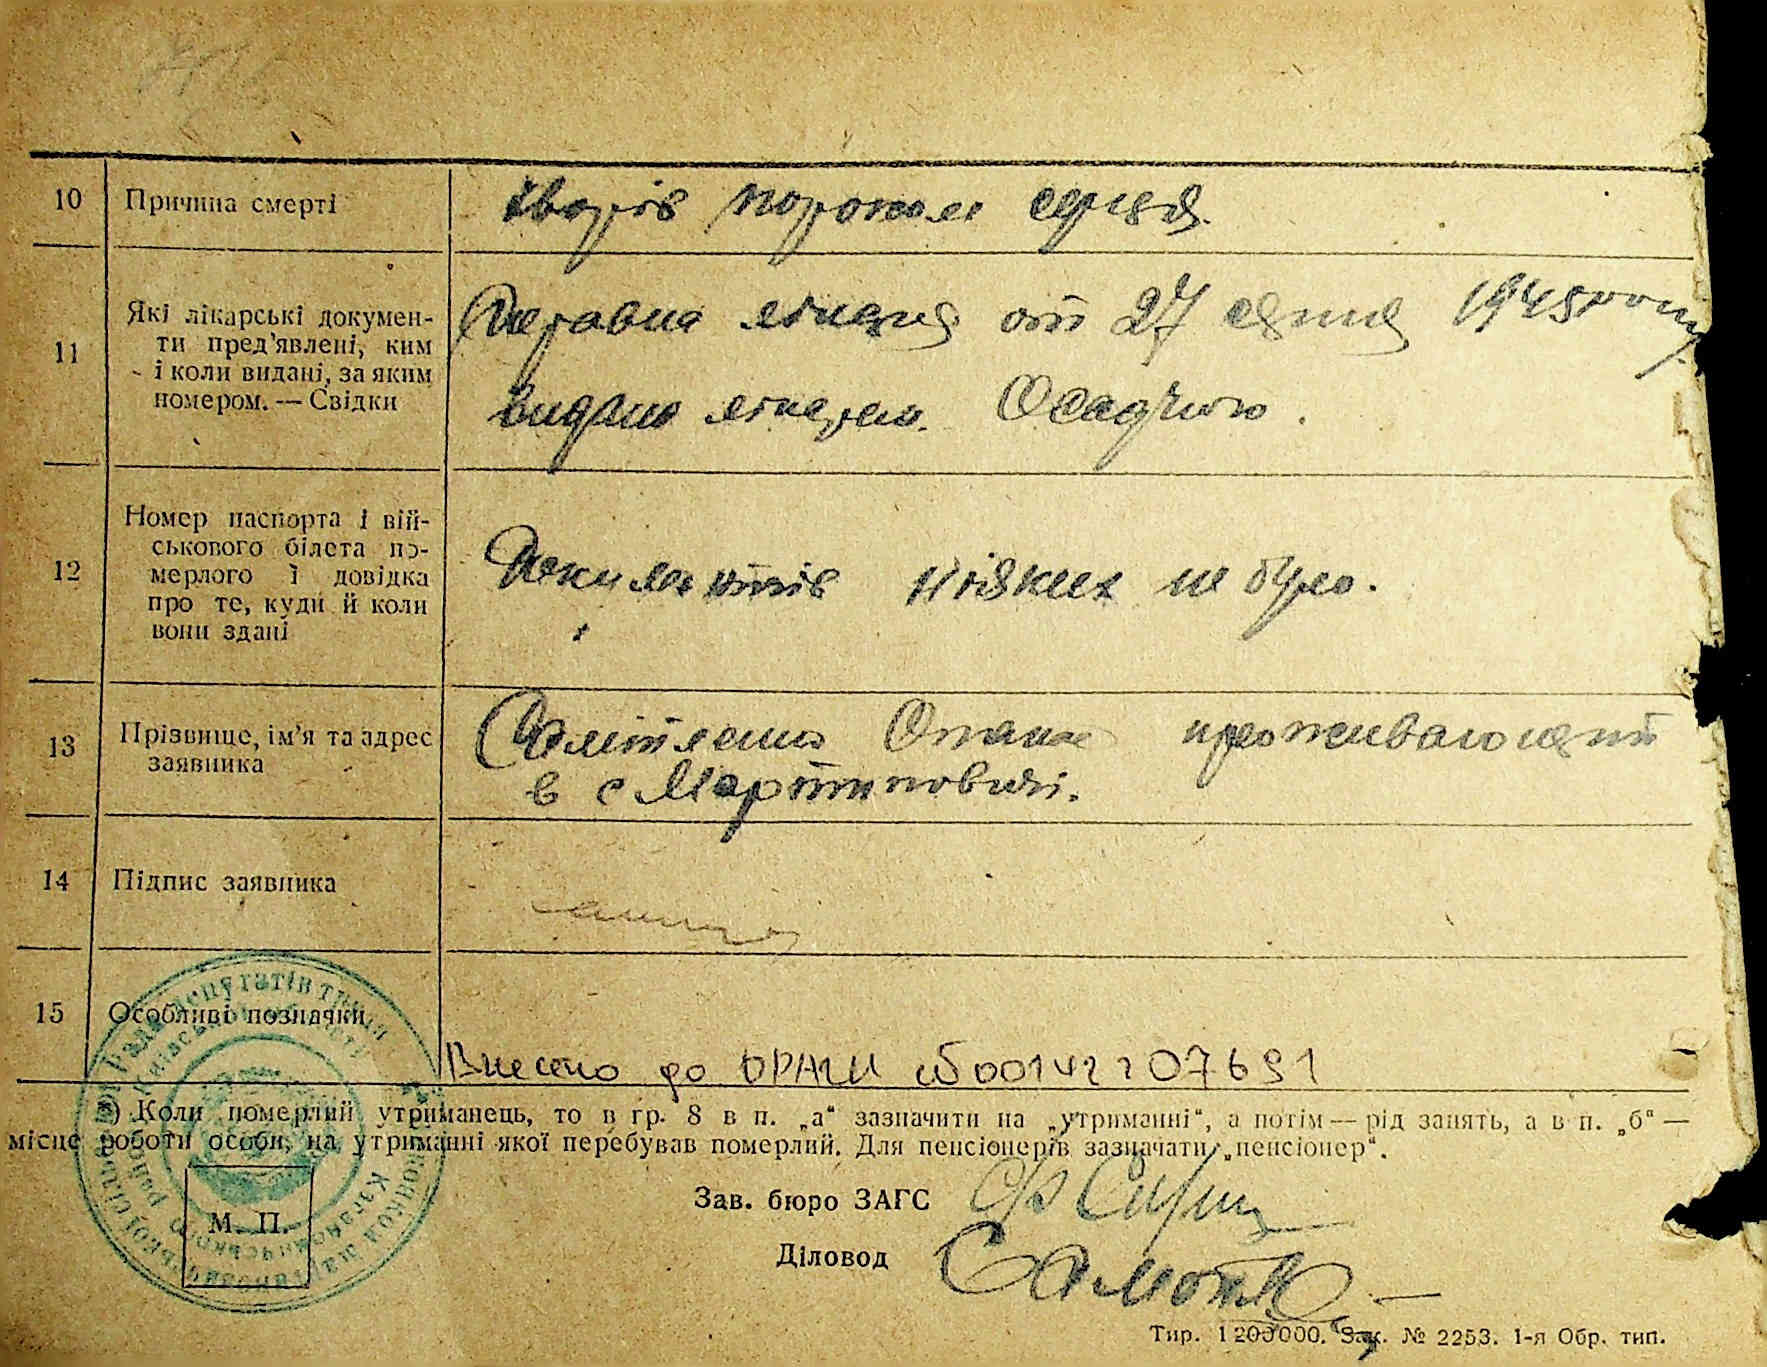 10 Причина смерті хворів пороком серця.
11 Які лікарські докумен-
ти пред'явлені, ким
і коли видані, за яким
номером. — Свідки
лікаря от 27 січня 1945 року
видано лікарем. Осадчою.
12 Номер паспорта і вій-
ськового білета по-
мерлого і довідка
про те, куди й коли
вони здані
Документів ніяких не було.
13 Прізвище, ім'я та адрес
заявника
проживающий
в с Мартиновичі.
14 Підпис заявника
15 Особливі позначки
Внесено до ДРАЦС
*) Коли померлий утриманець, то в гр. 8 в п. „а“ зазначити на „утриманні“, а потім — рід занять, а в п. „б“ —
місце роботи особи, на утриманні якої перебував померлий. Для пенсіонерів зазначати „пенсіонер“.
Зав. бюро ЗАГС
Діловод
М. П.
Тир. 1200000. Зак. № 2253. 1-я Обр. тип.